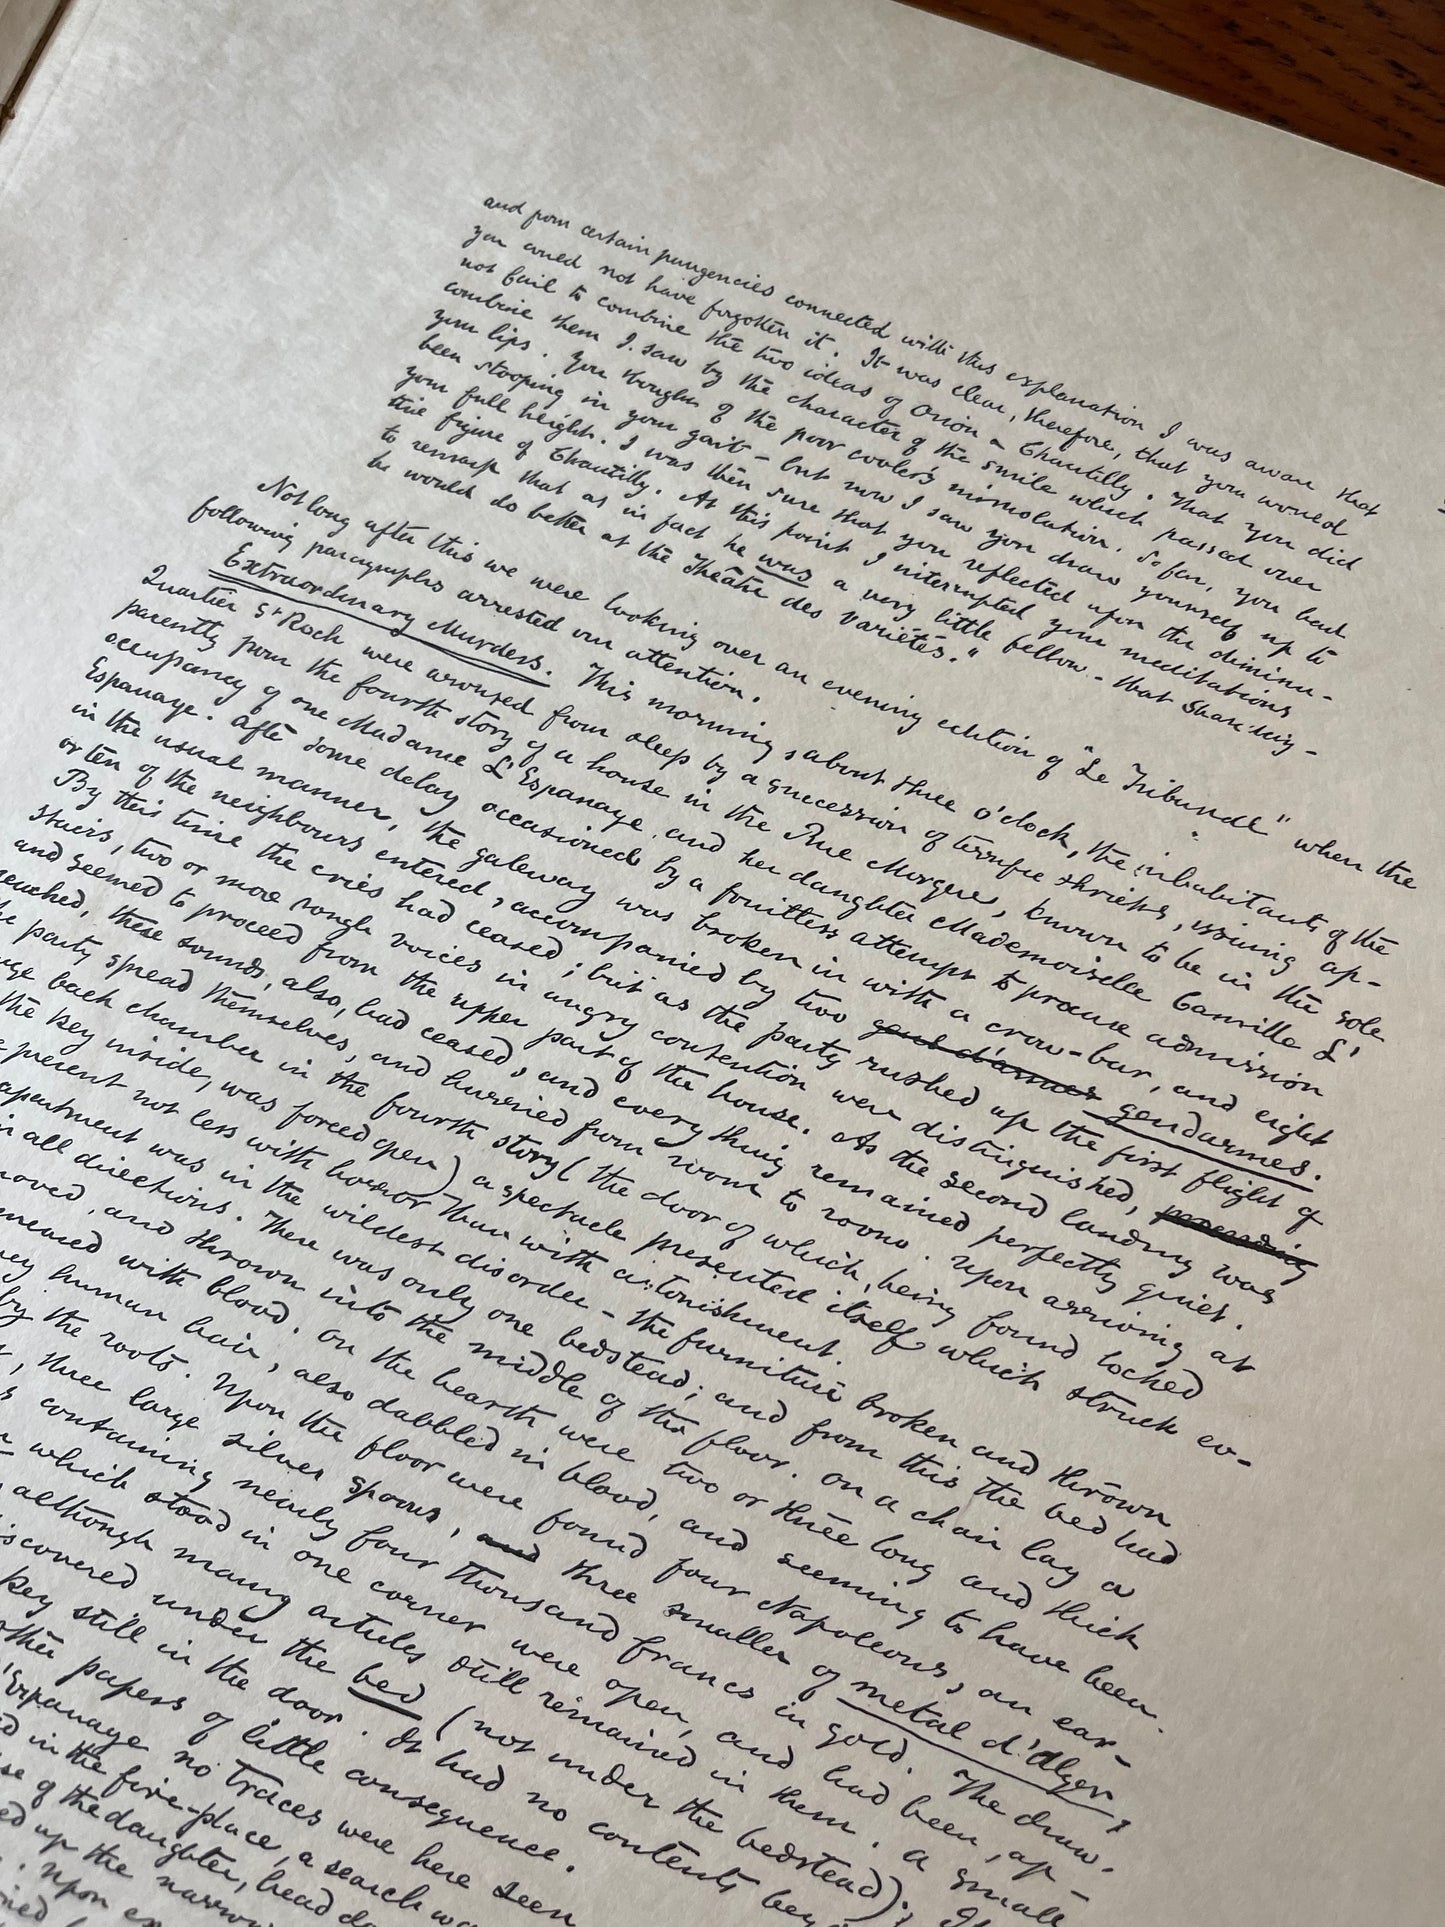 and from certain pungencies connected with this explanation I was aware that
you could not have forgotten it. It was clear, therefore, that you would
not fail to combine the two ideas of Orion & Chantilly. That you did
combine them I saw by the character of the smile which passed over
your lips. You thought of the poor cobler's immolation. So far, you had
been stooping in your gait – but now I saw you draw yourself up to
your full height. I was then sure that you reflected upon the diminu-
tive figure of Chantilly. At this point I interrupted your meditations
to remark that as in fact he was a very little fellow – that Chantilly –
he would do better at the Théâtre des Variétés."
Not long after this we were looking over an evening edition of "Le Tribunal" when the
following paragraphs arrested our attention.
Extraordinary Murders. This morning, about three o'clock, the inhabitants of the
Quartier St Roch were aroused from sleep by a succession of terrific shrieks, issuing ap-
parently from the fourth story of a house in the Rue Morgue, known to be in the sole
occupancy of one Madame L'Espanaye, and her daughter Mademoiselle Camille L'
Espanaye. After some delay occasioned by a fruitless attempt to procure admission
in the usual manner, the gateway was broken in with a crow-bar, and eight
or ten of the neighbours entered, accompanied by two gens d'armes gendarmes.
By this time the cries had ceased; but as the party rushed up the first flight of
stairs, two or more rough voices in angry contention were distinguished, proceeding
and seemed to proceed from the upper part of the house. As the second landing was
reached, these sounds, also, had ceased, and everything remained perfectly quiet.
party spread themselves, and hurried from room to room. Upon arriving at
back chamber in the fourth story (the door of which, being found locked
the key inside, was forced open) a spectacle presented itself which struck ev-
present not less with horror than with astonishment.
apartment was in the wildest disorder – the furniture broken and thrown
in all directions. There was only one bedstead; and from this the bed had
and thrown into the middle of the floor. On a chair lay a
with blood. On the hearth were two or three long and thick
human hair, also dabbled in blood, and seeming to have been
by the roots. Upon the floor were found four Napoleons, an ear-
three large silver spoons, and three smaller of metal d'Alger,
containing nearly four thousand francs in gold. The draw-
which stood in one corner were open, and had been, ap-
although many articles still remained in them. A small
discovered under the bed (not under the bedstead);
key still in the door. It had no contents
papers of little consequence.
no traces were here seen
in the fire-place, a search
of the daughter, head
up the narrow
Upon